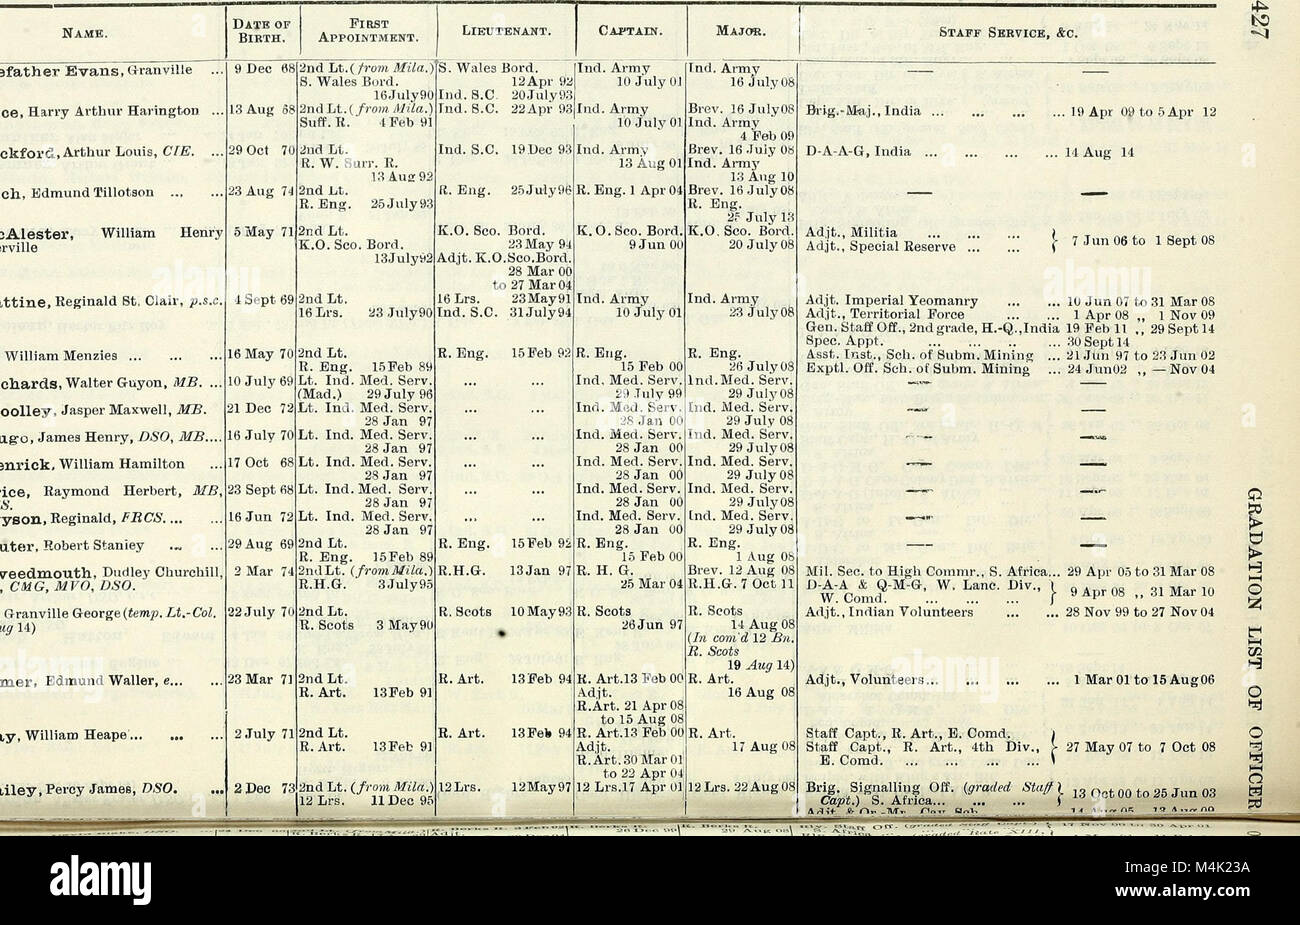 427
GRADATION LIST OF OFFICER
NAME. DATE OF BIRTH. FIRST APPOINTMENT. LIEUTENANT. CAPTAIN. MAJOR. STAFF SERVICE, &c.
efather Evans, Granville ... 9 Dec 68 2nd Lt. (from Mila.) S. Wales Bord. Ind. Army Ind. Army —
S. Wales Bord. 12 Apr 92 10 July 01 16 July 08
16 July 90 Ind. S.C. 20 July 93
ce, Harry Arthur Harington ... 13 Aug 68 2nd Lt. (from Mila.) Ind. S.C. 22 Apr 93 Ind. Army Brev. 16 July 08 Brig.-Maj., India ... ... ... 19 Apr 09 to 5 Apr 12
Suff. R. 4 Feb 91 10 July 01 Ind. Army
4 Feb 09
ckford, Arthur Louis, CIE. ... 29 Oct 70 2nd Lt. Ind. S.C. 19 Dec 93 Ind. Army Brev. 16 July 08 D-A-A-G, India ... ... ... ... 14 Aug 14
R. W. Surr. R. 13 Aug 01 Ind. Army
13 Aug 92 13 Aug 10
ch, Edmund Tillotson ... ... 23 Aug 74 2nd Lt. R. Eng. 25 July 96 R. Eng. 1 Apr 04 Brev. 16 July 08 — —
R. Eng. 25 July 93 R. Eng.
25 July 13
cAlester, William Henry 5 May 71 2nd Lt. K.O. Sco. Bord. K.O. Sco. Bord. K.O. Sco. Bord. Adjt., Militia ... ... ... ...
erville K.O. Sco. Bord. 23 May 94 9 Jun 00 20 July 08 Adjt., Special Reserve ... ... ... } 7 Jun 06 to 1 Sept 08
13 July 92 Adjt. K.O.Sco.Bord.
28 Mar 00
to 27 Mar 04
attine, Reginald St. Clair, p.s.c. 4 Sept 69 2nd Lt. 16 Lrs. 23 May 91 Ind. Army Ind. Army Adjt. Imperial Yeomanry ... ... 10 Jun 07 to 31 Mar 08
16 Lrs. 23 July 90 Ind. S.C. 31 July 94 10 July 01 23 July 08 Adjt., Territorial Force ... ... 1 Apr 08 ,, 1 Nov 09
Gen. Staff Off., 2nd grade, H.-Q., India 19 Feb 11 ,, 29 Sept 14
Spec. Appt. ... ... ... ... ... 30 Sept 14
William Menzies ... ... ... 16 May 70 2nd Lt. R. Eng. 15 Feb 92 R. Eng. R. Eng. Asst. Inst., Sch. of Subm. Mining ... 21 Jun 97 to 23 Jun 02
R. Eng. 15 Feb 89 15 Feb 00 26 July 08 Exptl. Off. Sch. of Subm. Mining ... 24 Jun 02 ,, — Nov 04
chards, Walter Guyon, MB. ... 10 July 69 Lt. Ind. Med. Serv. ... ... Ind. Med. Serv. Ind. Med. Serv. — —
(Mad.) 29 July 96 29 July 99 29 July 08
oolley, Jasper Maxwell, MB. 21 Dec 72 Lt. Ind. Med. Serv. ... ... Ind. Med. Serv. Ind. Med. Serv. — —
28 Jan 97 28 Jan 00 29 July 08
ugo, James Henry, DSO, MB.... 16 July 70 Lt. Ind. Med. Serv. ... ... Ind. Med. Serv. Ind. Med. Serv. — —
28 Jan 97 28 Jan 00 29 July 08
enrick, William Hamilton ... 17 Oct 68 Lt. Ind. Med. Serv. ... ... Ind. Med. Serv. Ind. Med. Serv. — —
28 Jan 97 28 Jan 00 29 July 08
rice, Raymond Herbert, MB, 23 Sept 68 Lt. Ind. Med. Serv. ... ... Ind. Med. Serv. Ind. Med. Serv. — —
S. 28 Jan 97 28 Jan 00 29 July 08
yson, Reginald, FRCS.... ... 16 Jun 72 Lt. Ind. Med. Serv. ... ... Ind. Med. Serv. Ind. Med. Serv. — —
28 Jan 97 28 Jan 00 29 July 08
uter, Robert Stanley ... ... 29 Aug 69 2nd Lt. R. Eng. 15 Feb 92 R. Eng. R. Eng. — —
R. Eng. 15 Feb 89 15 Feb 00 1 Aug 08
weedmouth, Dudley Churchill, 2 Mar 74 2nd Lt. (from Mila.) R.H.G. 13 Jan 97 R. H. G. Brev. 12 Aug 08 Mil. Sec. to High Commr., S. Africa... 29 Apr 05 to 31 Mar 08
, CMG, MVO, DSO. R.H.G. 3 July 95 25 Mar 04 R.H.G. 7 Oct 11 D-A-A & Q-M-G, W. Lanc. Div.,
W. Comd. ... ... ... ... } 9 Apr 08 ,, 31 Mar 10
Granville George (temp. Lt.-Col. 22 July 70 2nd Lt. R. Scots 10 May 93 R. Scots R. Scots Adjt., Indian Volunteers ... ... 28 Nov 99 to 27 Nov 04
ug 14) R. Scots 3 May 90 26 Jun 97 14 Aug 08
(In com'd 12 Bn.
R. Scots
19 Aug 14)
mer, Edmund Waller, e... ... 23 Mar 71 2nd Lt. R. Art. 13 Feb 94 R. Art. 13 Feb 00 R. Art. Adjt., Volunteers... ... ... ... 1 Mar 01 to 15 Aug 06
R. Art. 13 Feb 91 Adjt. 16 Aug 08
R.Art. 21 Apr 08
to 15 Aug 08
ay, William Heape... ... ... 2 July 71 2nd Lt. R. Art. 13 Feb 94 R. Art. 13 Feb 00 R. Art. Staff Capt., R. Art., E. Comd.
R. Art. 13 Feb 91 Adjt. 17 Aug 08 Staff Capt., R. Art., 4th Div., } 27 May 07 to 7 Oct 08
R. Art. 30 Mar 01 E. Comd. ... ... ... ...
to 22 Apr 04
ailey, Percy James, DSO. ... 2 Dec 73 2nd Lt. (from Mila.) 12 Lrs. 12 May 97 12 Lrs. 17 Apr 01 12 Lrs. 22 Aug 08 Brig. Signalling Off. (graded Staff
12 Lrs. 11 Dec 95 Capt.) S. Africa... ... ... } 13 Oct 00 to 25 Jun 03
alamy
Image ID: M4K23A
www.alamy.com